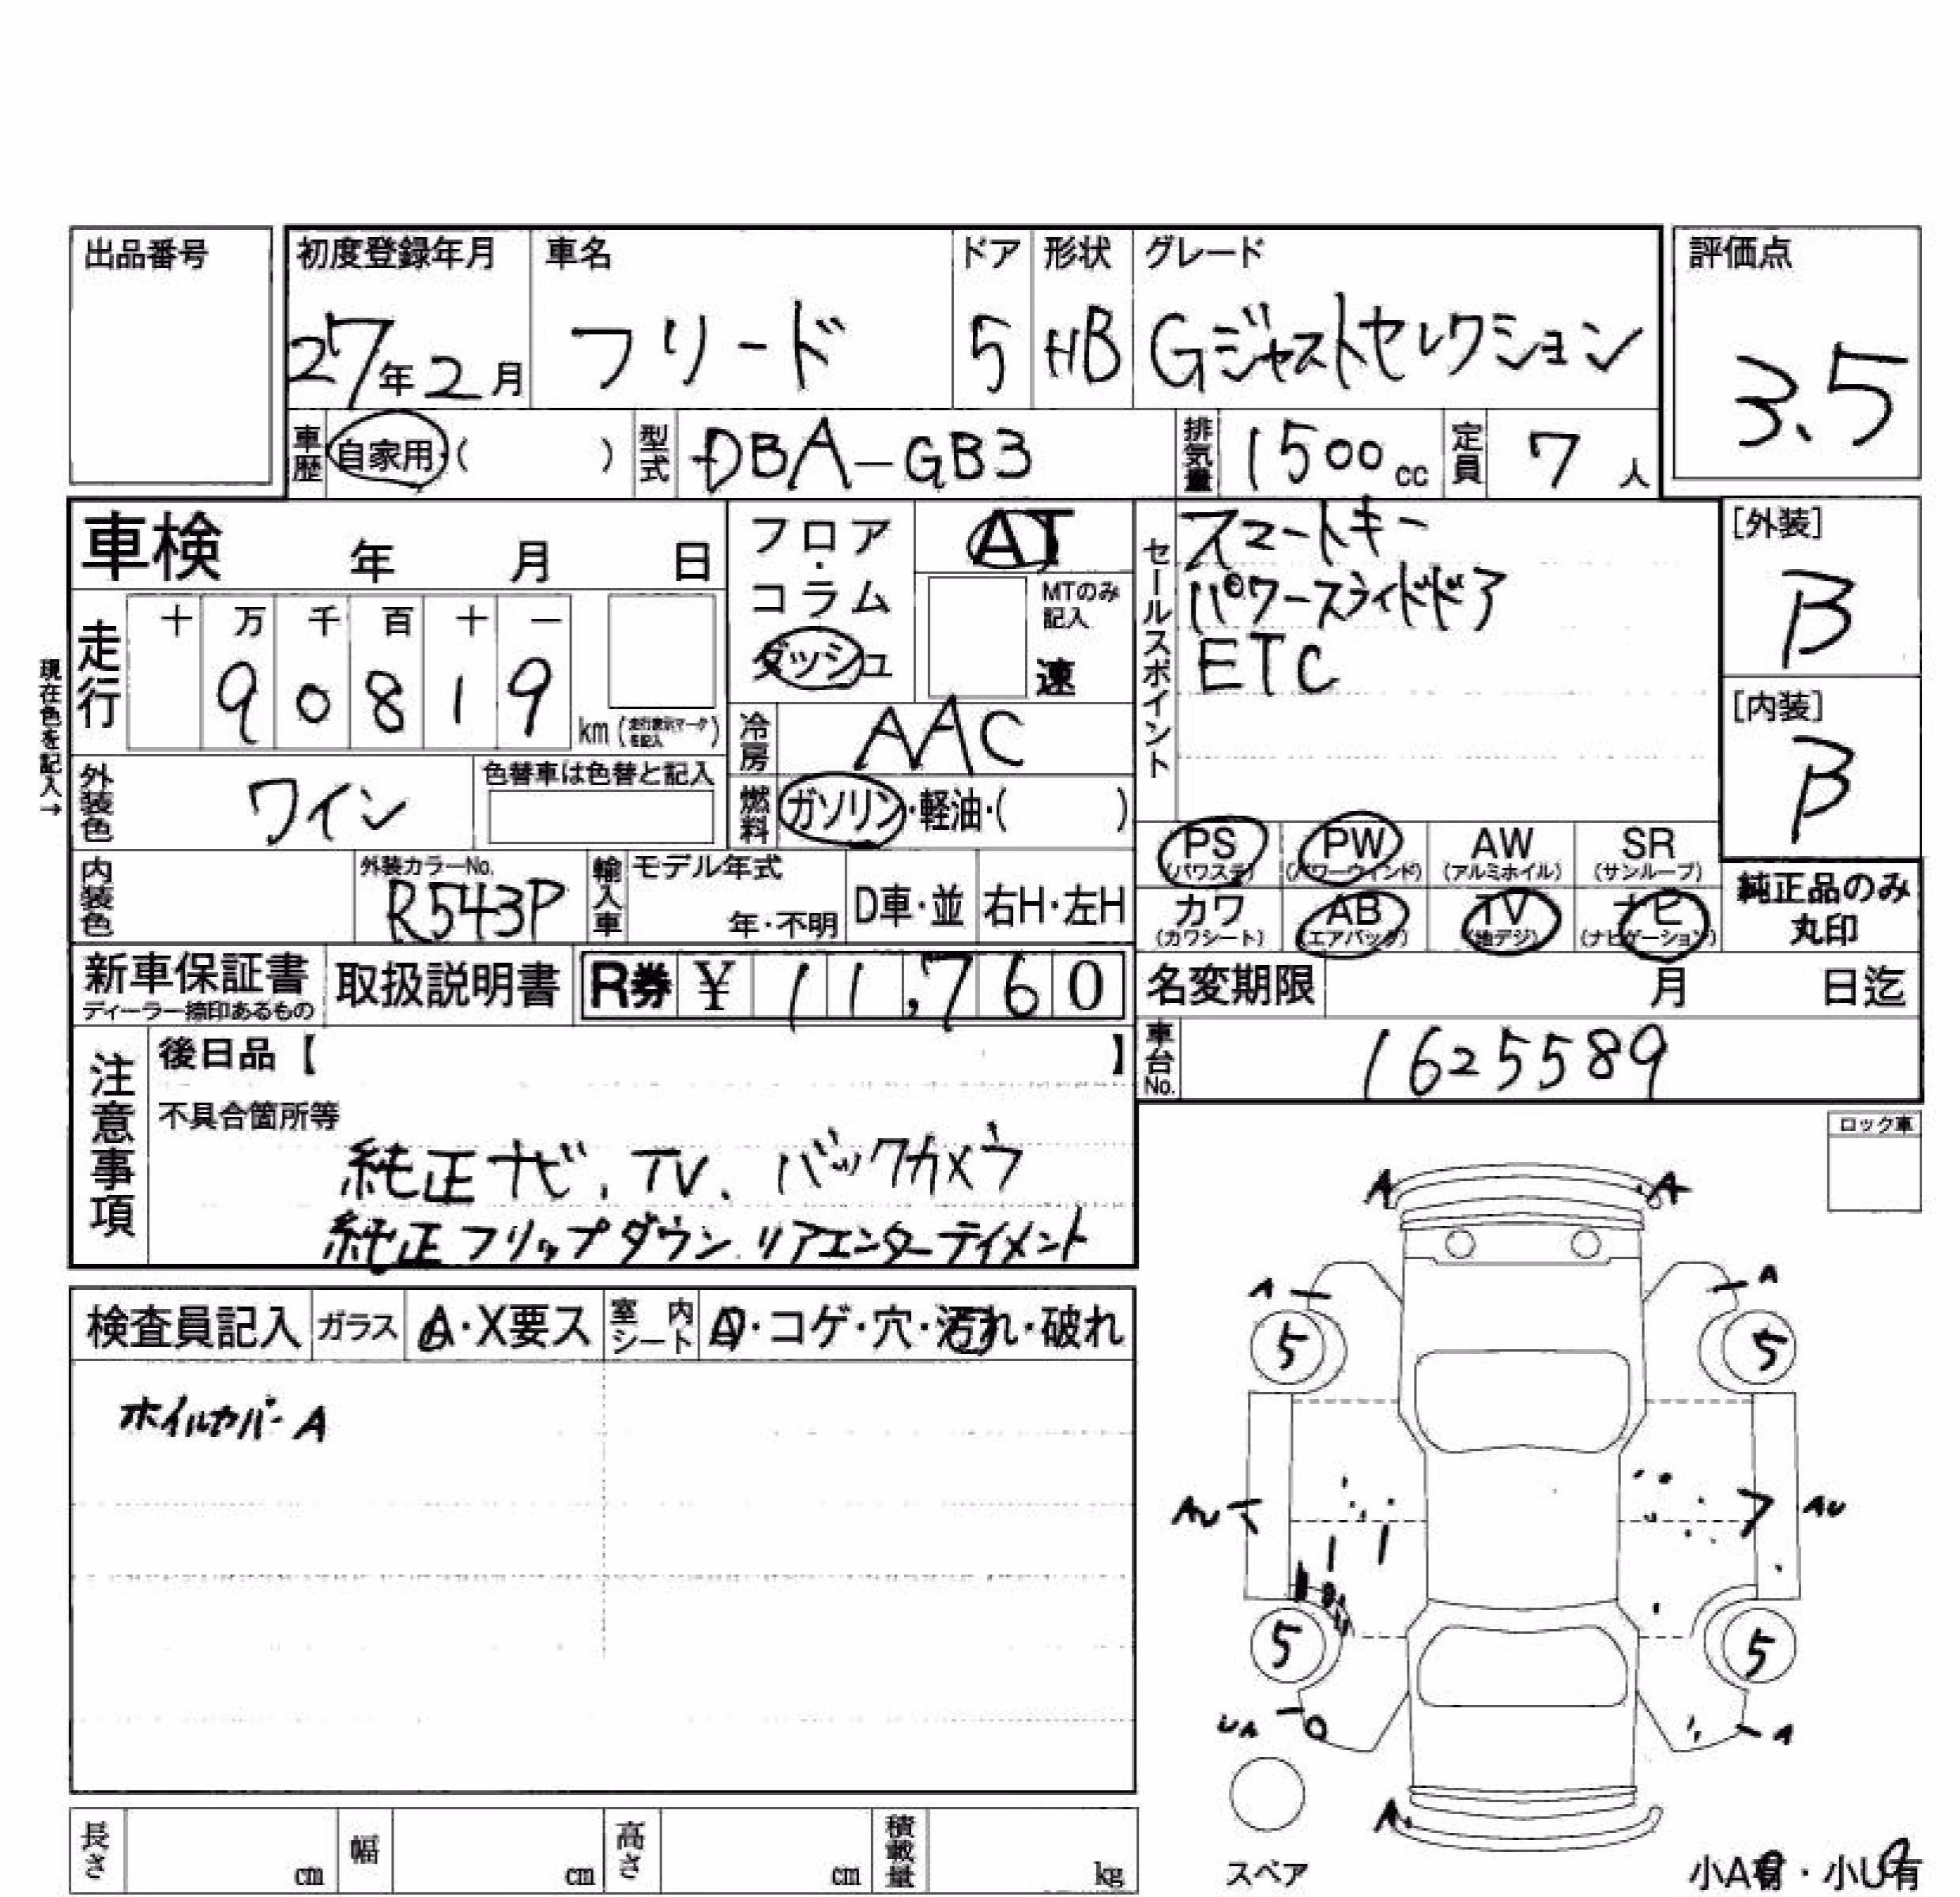 出品番号
初度登録年月 車名 ドア 形状 グレード 評価点
27年2月 フリード 5 HB Gジャストセレクション 3.5
車歴 自家用・( ) 型式 DBA-GB3 排気量 1500cc 定員 7人
車検 年 月 日
フロア・コラム ダッシュ
AT
MTのみ記入
速
セールスポイント
スマートキー
パワースライドドア
ETC
[外装]
B
[内装]
B
現在色を記入→
走行 十 万 千 百 十 一
9 0 8 1 9
km (走行表示マークを記入)
冷房 AAC
燃料 ガソリン・軽油・( )
外装色 ワイン 色替車は色替と記入
内装色 外装カラーNo. R543P 輸入車 モデル年式 年・不明 D車・並 右H・左H
PS (パワステ) PW (パワーウインド) AW (アルミホイル) SR (サンルーフ)
カワ (カワシート) AB (エアバッグ) TV (地デジ) ナビ (ナビゲーション)
純正品のみ丸印
新車保証書 ディーラー捺印あるもの 取扱説明書 R券 ¥ 11,760
名変期限 月 日迄
車台No. 1625589
注意事項
後日品【 】
不具合箇所等
純正ナビ、TV、バックカメラ
純正フリップダウン リアエンターテイメント
ロック車
検査員記入 ガラス A・X要ス 室内シート A・コゲ・穴・汚れ・破れ
ホイルカバーA
A A
A A
5 5
AU AU
5 5
UA A
A
スペア
小A有・小U有
長さ cm 幅 cm 高さ cm 積載量 kg